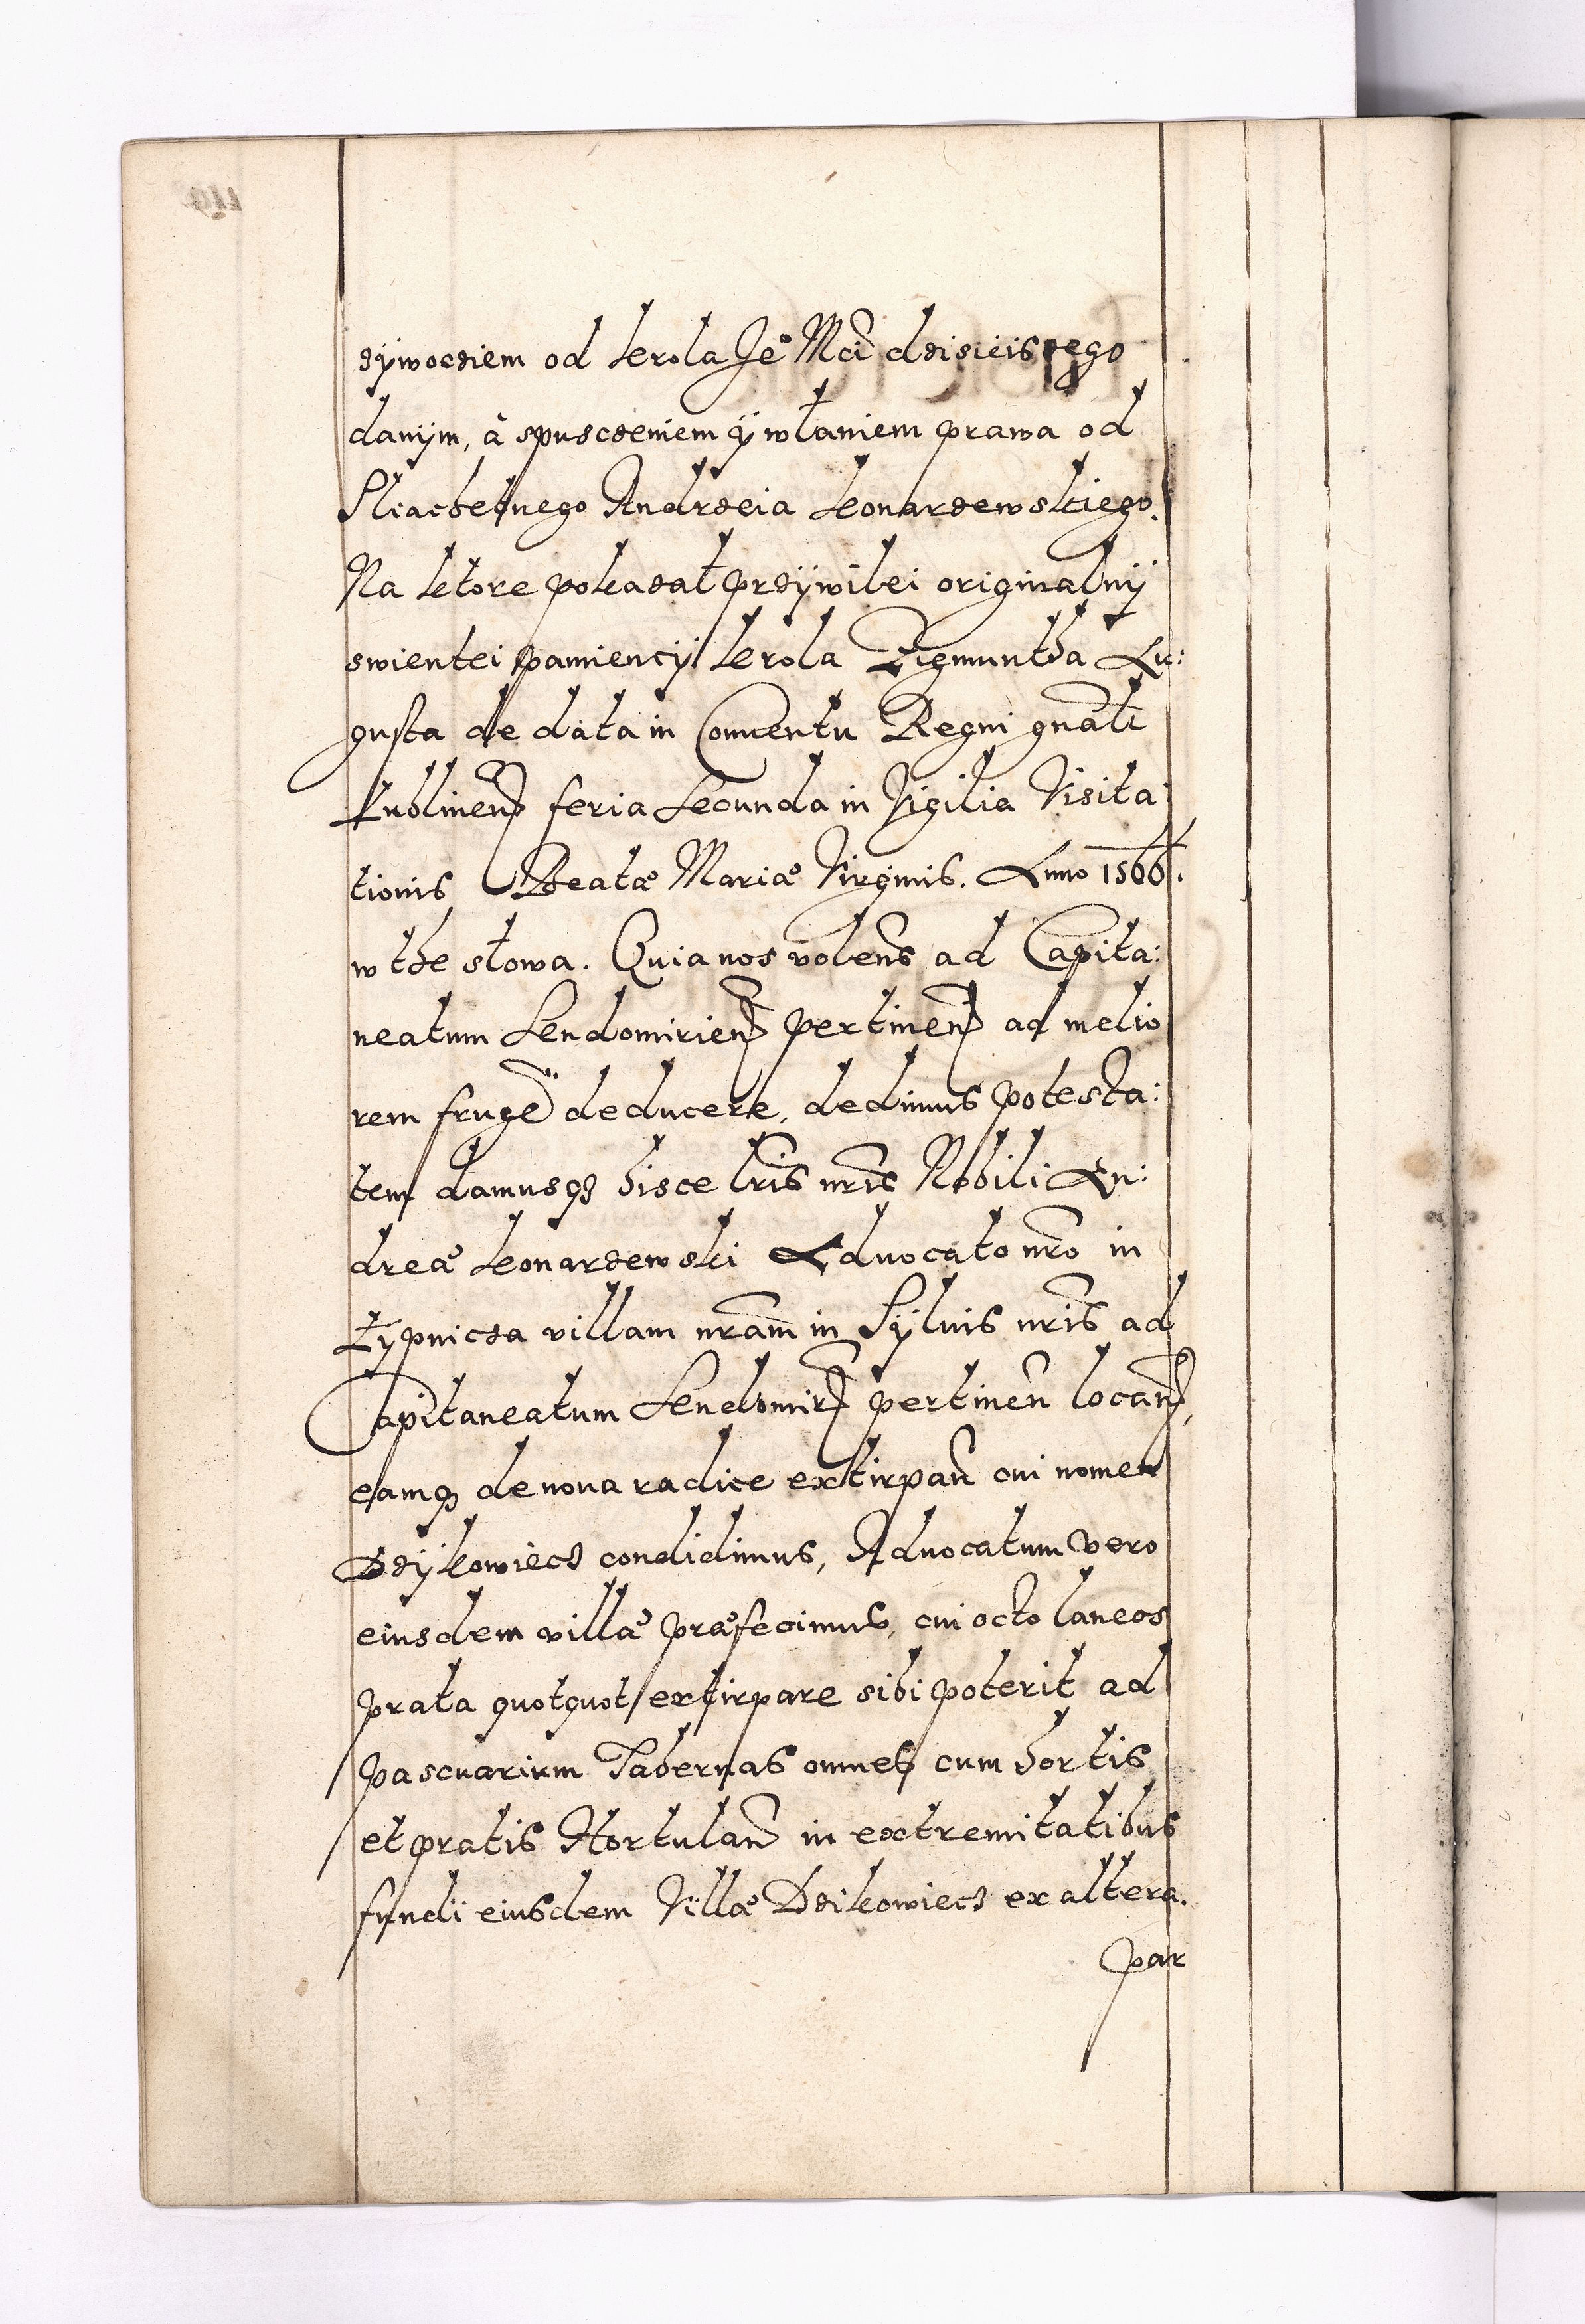 zÿwocziem od krola Je° Mci dzisieiszego
danÿm, à spusczeniem ÿ wlaniem prawa od
Slachetnego Andrzeia Konarzewskiego.
Na ktore pokazał przÿwilei originalnÿ
swientei pamiencÿ krola Zigmuntha Au:
gusta de data in Conuentu Regni gnâli
Lublinen̄ feria Secunda in Vigilia Visita:
tionis Beatæ Mariæ Virginis. Anno 1566.
w the słowa. Quia nos volens̄ ad Capita:
neatum Sendomirien̄ pertinen̄ ad melio
rem frugē deducere, dedimus potesta:
tem damusq3 hisce lr̄is nr̄is Nobili An:
dreæ Konarzewski Aduocato nr̄o in
Łypnicza villam nr̄am in Sÿluis nr̄is ad
Capitaneatum Sendomir̄ pertinen̄ locan̄,
eamq3 de noua radice extirpan̄ cui nomen
Dzÿkowiecz condidimus, Aduocatum vero
eiusdem villæ præfecimus, cui octo laneos
prata quotquot extirpare sibi poterit ad
pascuarium Tabernas omnes cum hortis
et pratis Hortulan̄ in extremitatibus
fundi eiusdem Villæ Dzikowiecz ex altera.
par